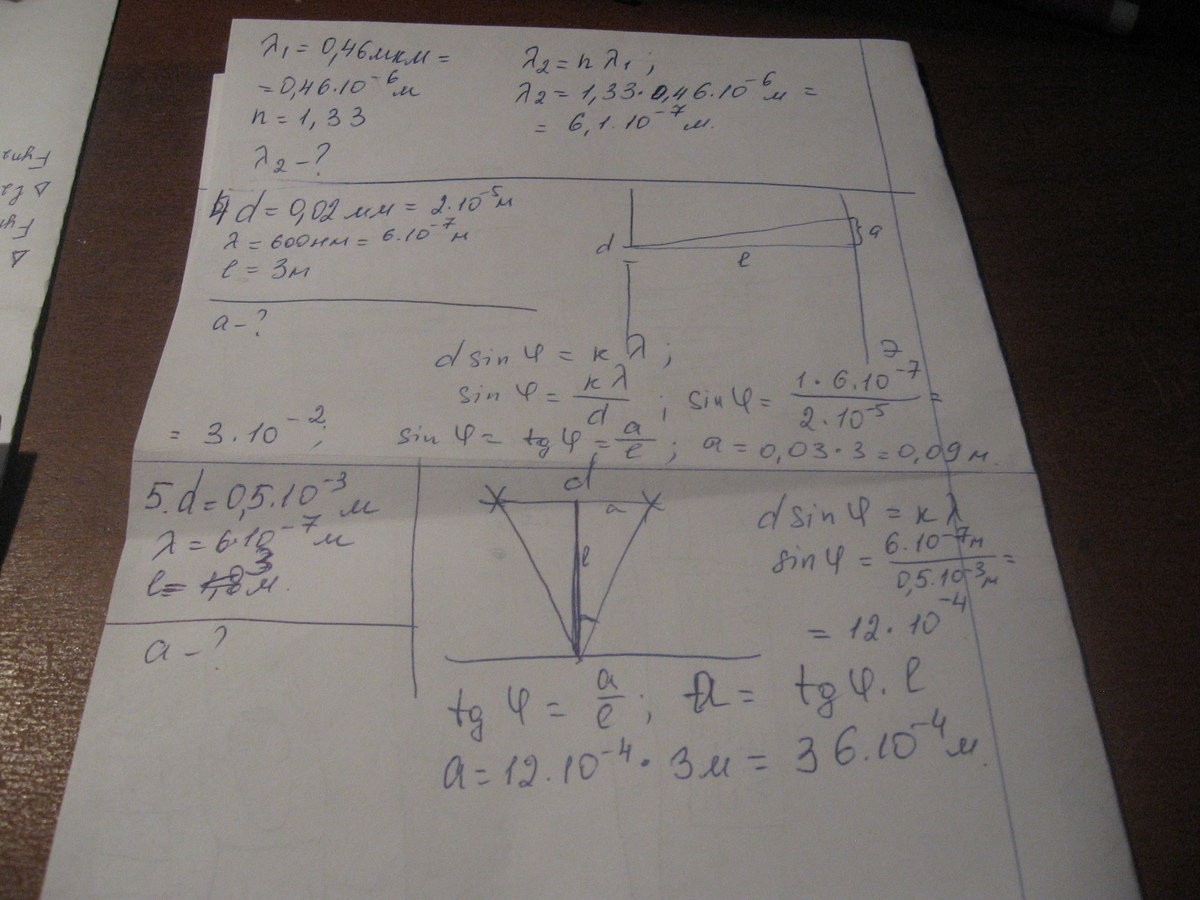 λ₁ = 0,46 мкм =
= 0,46·10⁻⁶ м
n = 1,33
λ₂ – ?
λ₂ = n λ₁ ;
λ₂ = 1,33·0,46·10⁻⁶ м =
= 6,1·10⁻⁷ м.
4 d = 0,02 мм = 2·10⁻⁵ м
λ = 600 нм = 6·10⁻⁷ м
l = 3 м
a – ?
d
l
a
d sin φ = к λ ;
sin φ = кλ/d ; sin φ = 1·6·10⁻⁷/2·10⁻⁵ =
= 3·10⁻² ; sin φ = tg φ = a/l ; a = 0,03·3 = 0,09 м.
5. d = 0,5·10⁻³ м
λ = 6·10⁻⁷ м
l = 3 м.
a – ?
d
a
l
d sin φ = к λ
sin φ = 6·10⁻⁷ м/0,5·10⁻³ м =
= 12·10⁻⁴
tg φ = a/l ; a = tg φ · l
a = 12·10⁻⁴ · 3 м = 36·10⁻⁴ м.